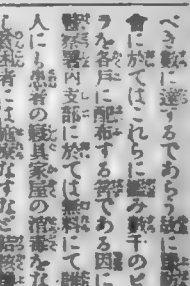 べき數に達するであらう故に
會に於てはこれらに鑑み若干のビ
ラを各戸に配布する筈である因に
警察署內支部に於ては無料にて
人にし患者の寢具家屋の消毒をな
者には施療なすなど